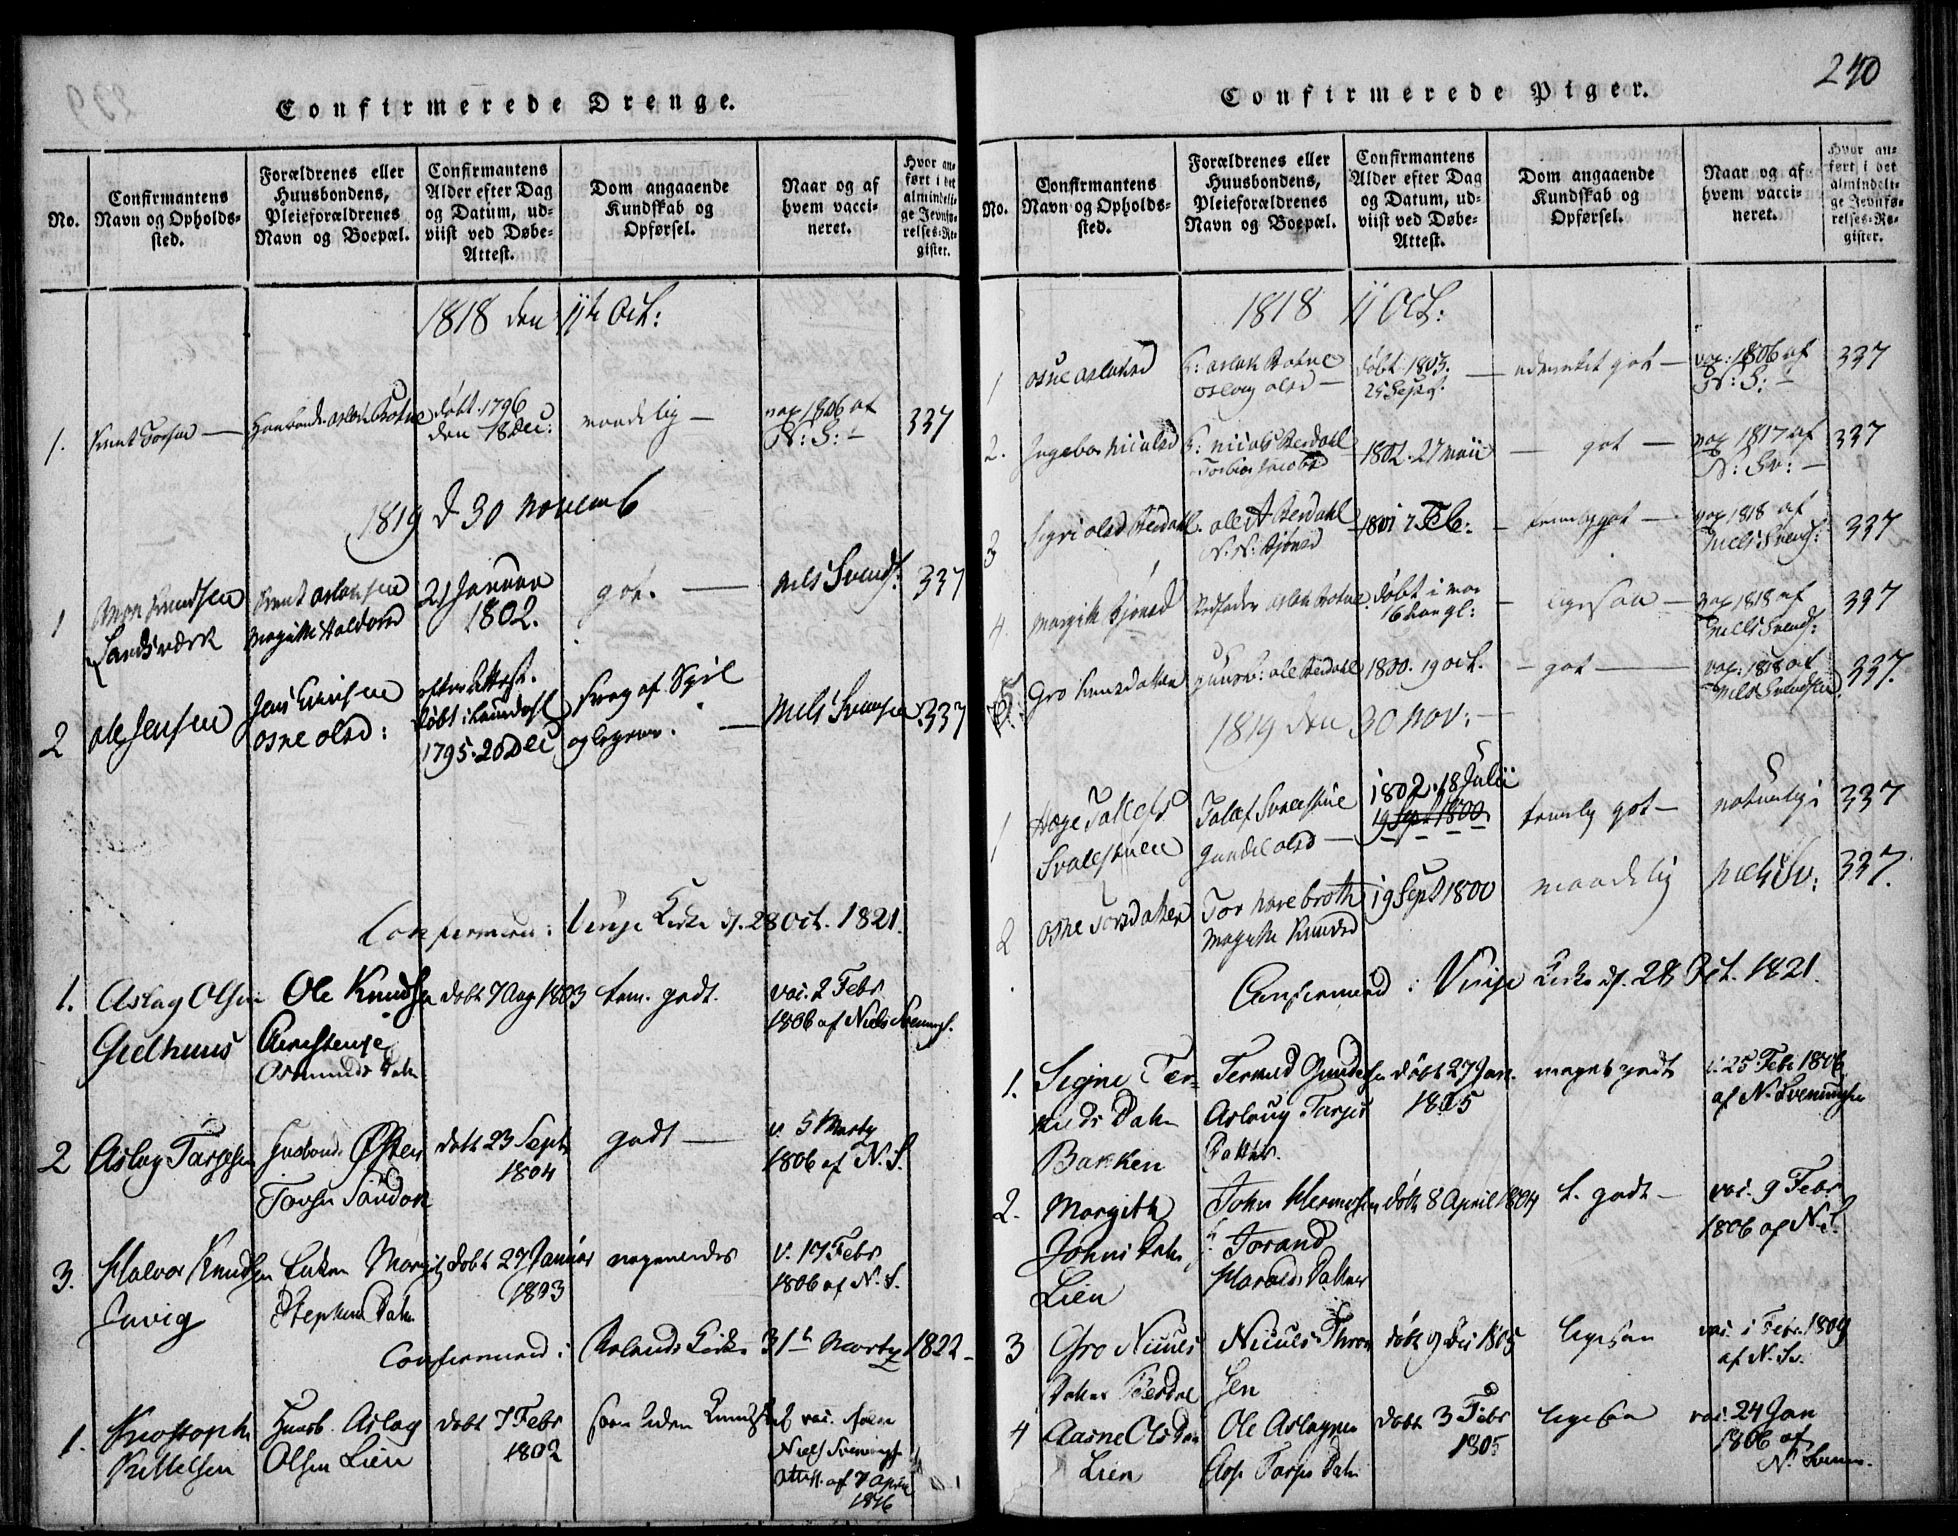 Confirmerede Drenge.
No.
Confirmantens
Navn og Opholds-
sted.
Forældrenes eller
Huusbondens,
Pleieforældrenes
Navn og Boepæl.
Confirmantens
Alder efter Dag
og Datum, ud-
viist ved Døbe-
Attest.
Dom angaaende
Kundskab og
Opførsel.
Naar og af
hvem vacci-
neret.
Hvor an-
ført i det
almindeli-
ge Jevnfø-
relses-Re-
gister.
1818 den 11te Oct:
1.
døbt. 1796
den 18 Dec:
maadelig —
vax 1806 af
N: S: —
337
1819 d 30 Novemb
1
Amon Knudsen
Sandsværk
Knut Aslaksen
Margithe Haldorsd
21 Januar
1802.
got. —
Nels Svends:
337
2
Ole Jensen
Osne Olsd:
efter Attest.
døbt i
1795. 20 Dec
svag af
—
Niels Svensen
337
Confirmeret i Vinje Kirke d. 28 Oct. 1821.
1.
Aslag Olsen
Ole Knudsen
Osmunds Datr
døbt 7 Aug 1803
tem. godt.
vac. 2 Febr
1806 af Niels Svenungs.
2
Aslag Targesen
Husbond Østen
Torsen
døbt 23 Septr
1804
godt —
v. 5 Marty
1806 af N. S.
3.
Halvor Knudsen
Enken Margith
Stephens Datr
døbt 27 Januar
1803
nogenledes
v. 17 Febr
1806 af N. S.
Confirmered i Kirke 31te Marty 1822 –
1.
Kristoph
Kittelsen
Husb. Aslag
Olsen Lien
døbt 7 Febr
1802
vac.
Niels Svenungs
Attest. af 7 April
1816
240
Confirmerede Piger.
No.
Confirmantens
Navn og Opholds-
sted.
Forældrenes eller
Huusbondens,
Pleieforældrenes
Navn og Boepæl.
Confirmantens
Alder efter Dag
og Datum, ud-
viist ved Døbe-
Attest.
Dom angaaende
Kundskab og
Opførsel.
Naar og af
hvem vacci-
neret.
Hvor an-
ført i det
almindeli-
ge Jevnfø-
relses-Re-
gister.
1818 11 Oct:
1
Osne Aslaksd
Aslak Botne
Oslaug Olsd —
døbt. 1803.
25 Sept.
— udmerket got —
vax: 1806 af
N: S: —
337
2.
Ingebor Niculsd
Nicols Berdahl
Torbor Jacobsd
1802. 27 Maii
— got —
vax 1817 af
N: Sv: —
337
3
Sigri Olsd Berdahl
Ole A Berdahl
N: N: Bjønsd
1801 7 Feb:
— temlig got —
vax 1818 af
Niels Svends:
337
4.
Margith Bjønsd
Aslak Botne
døbt i
16 Aar gl:
— ligesaa —
vax 1818 af
Niels Svends:
337
5.
Gro Knudsdatter
Huusb: Ole Berdahl
1800. 19 Oct.
— got —
vax: 1818 af
Niels Svendsen
337.
1819 den 30 Nov: —
1
Aage Tallefs
Svalestuen
Talef Svalestue
Gundel Olsd —
1802. 18 Julii
19 Sept 1800
temlig got —
naturlig
337
2
Osne Torsdatter
Tor Harebroth
Margithe Knudsd
19 Sept 1800
maadelig
Niels Sv:
337.
Confirmered i Vinje Kirke d. 28 Oct. 1821.
1.
Signe Ter-
Datr
Bakken
Termud Gundersen
Aslaug Targes
Datter.
døbt 27 Jan.
1805
meget godt
v. 25 Feb: 1806
af N. Svenungsen
2.
Margith
Johns Datr
Lien
John Hermosen
Torand
Harolds Datter
døbt 8 April 1804
t. godt —
vac. 9 Febr
1806 af N. S.
3
Gro Niculs
Datter Berdal
Niculs Thron
sen
døbt 9 Dec 1805
ligesaa
vac. 1 Febr. 1809
af N. Sv.
4
Aasne Ols Datr
Lien
Ole Aslagsen
Targes Datr
døbt 3 Febr
1805
ligesaa
vac. 24 Jan
1806 af
N. Svenun.